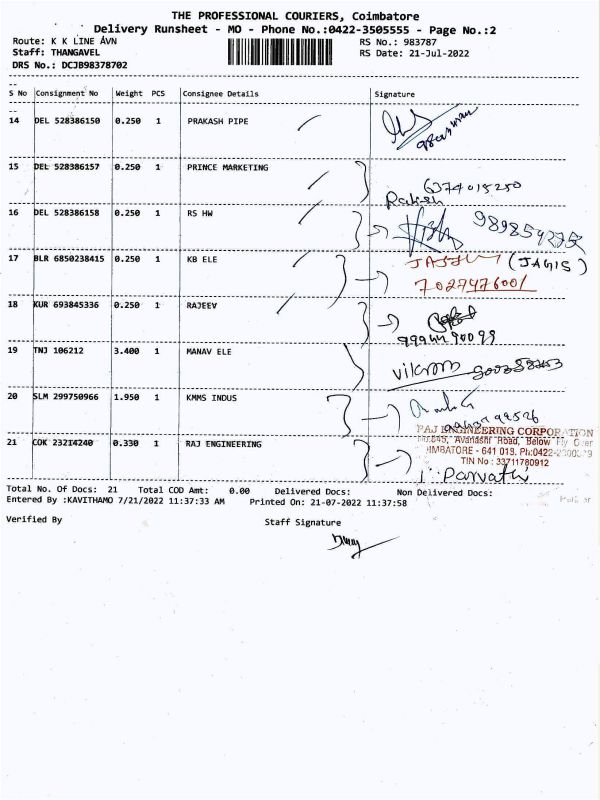 THE PROFESSIONAL COURIERS, Coimbatore
Delivery Runsheet - MO - Phone No.:0422-3505555 - Page No.:2
Route: K K LINE AVN RS No.: 983787
Staff: THANGAVEL RS Date: 21-Jul-2022
DRS No.: DCJB98378702
S No Consignment No Weight PCS Consignee Details Signature
14 DEL 528386150 0.250 1 PRAKASH PIPE
15 DEL 528386157 0.250 1 PRINCE MARKETING
6374015250
Rakesh
16 DEL 528386158 0.250 1 RS HW
17 BLR 6850238415 0.250 1 KB ELE
7027476001
18 KUR 693845336 0.250 1 RAJEEV
19 TNJ 106212 3.400 1 MANAV ELE
vikram
20 SLM 299750966 1.950 1 KMMS INDUS
21 COK 23214240 0.330 1 RAJ ENGINEERING
ENGINEERING CORPORATION
Avanashi Road, Below Fly Over
641 018. Ph:0422-
TIN No : 33711780912
Parvathi
Total No. Of Docs: 21 Total COD Amt: 0.00 Delivered Docs: Non Delivered Docs:
Entered By :KAVITHAMO 7/21/2022 11:37:33 AM Printed On: 21-07-2022 11:37:58
Verified By Staff Signature